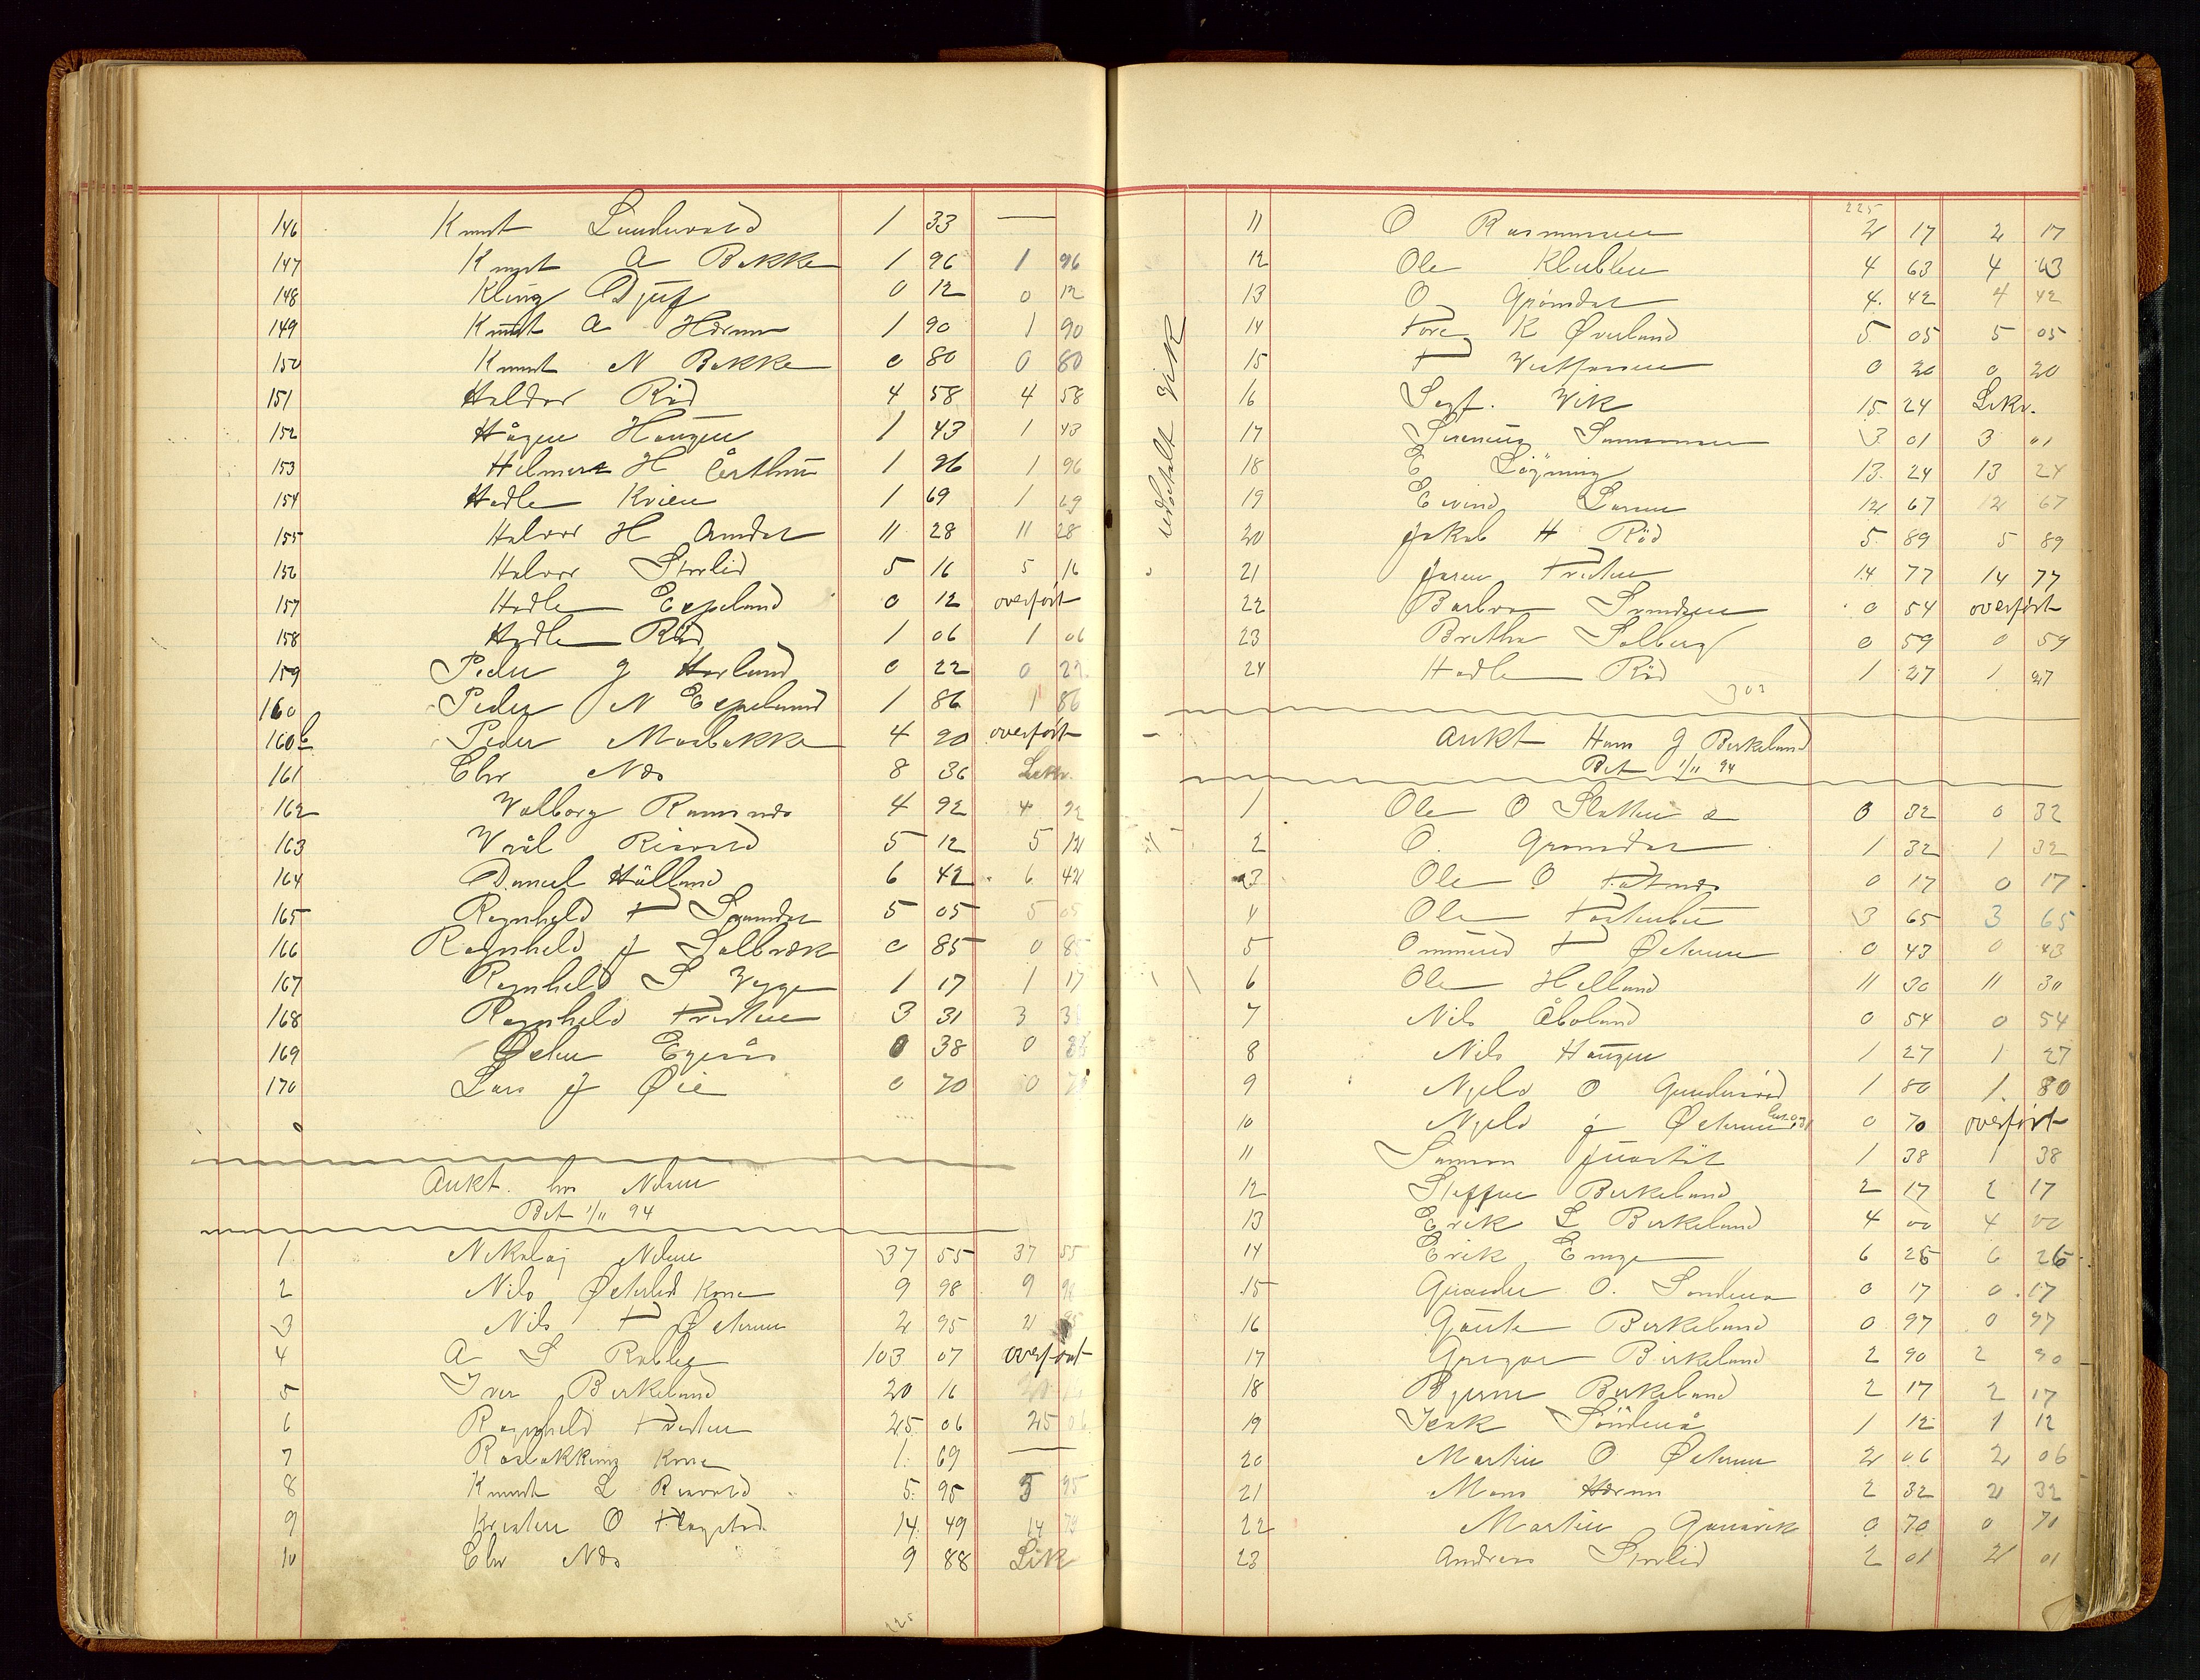 146 Knut Lundevold 1 33 —
147 Knut A Bakke 1 96 1 96
148 Kling Djuf 0 12 0 12
149 Knut A Hærum 1 90 1 90
150 Knut N Bakke 0 80 0 80
151 Haldor Rød 4 58 4 58
152 Hågen Haugen 1 43 1 43
153 Helmer H Ørthun 1 96 1 96
154 Hadle Kvien 1 69 1 69
155 Halvor H Amdal 11 28 11 28
156 Halvor Storlid 5 16 5 16
157 Hadle Espeland 0 12 overført
158 Hadle Rød 1 06 1 06
159 Peder J Havland 0 22 0 22
160 Peder N Espeland 1 86 1 86
160b Peder Mosbakke 4 90 overført
161 Chr Næs 8 36 Likv.
162 Valborg Ramsnæs 4 92 4 92
163 Vraal Risvold 5 12 5 12
164 Daniel Hålland 6 42 6 42
165 Ragnhild T Svandal 5 05 5 05
166 Ragnhild J Solbræk 0 85 0 85
167 Ragnhild S Vågge 1 17 1 17
168 Ragnhild Tveten 3 31 3 31
169 Østen Egerås 0 38 0 38
170 Lars J Øie 0 70 0 70
Aukt. hos Næsen
Bet 1/11 94
1 Nikolaj Næsen 37 55 37 55
2 Nils Østerlid Kone 9 98 9 98
3 Nils T Østerne 2 95 2 95
4 A S Rabbe 103 07 overført
5 Iver Birkeland 20 16 20 16
6 Ragnhild Tveten 25 06 25 06
7 Rosbakking Kone 1 69 —
8 Knut L Risvold 5 95 5 95
9 Kristen O Flagstad 14 49 14 79
10 Chr Næs 9 88 Lik
225
225
11 O Rasmussen 2 17 2 17
12 Ole Klubben 4 63 4 63
13 O Grønsdal 4 42 4 42
14 Tore K Øverland 5 05 5 05
15 T 0 20 0 20
16 Serg. Wik 15 24 Likv.
17 3 01 3 01
18 E Løgning 13 24 13 24
19 Eivind Larsen 12 67 12 67
20 Jakob H Rød 5 89 5 89
21 Jaren Tveten 14 77 14 77
22 Barbra Svendsen 0 54 overført
23 Brethe Solberg 0 59 0 59
24 Hadle Rød 1 27 1 27
303
udbetalt Wik
Aukt Hans J Birkeland
Bet 1/11 94
1 Ole O 0 32 0 32
2 O. Grønsdal 1 32 1 32
3 Ole O Fatnæs 0 17 0 17
4 Ole Fosterbu 3 65 3 65
5 Ommund T Østerne 0 43 0 43
6 Ole Helland 11 30 11 30
7 Nils Åboland 0 54 0 54
8 Nils Haugen 1 27 1 27
9 Njeld O Gundersrød 1 80 1 80
10 Njeld J Østerne 0 70 overført
11 Samson Juastøl 1 38 1 38
12 Steffen Birkeland 2 17 2 17
13 Erik L Birkeland 4 00 4 00
14 Erik Enge 6 26 6 26
15 O. Søndenå 0 17 0 17
16 Gaute Birkeland 0 97 0 97
17 Gregar Birkeland 2 90 2 90
18 Bjerne Birkeland 2 17 2 17
19 Isak Søndenå 1 12 1 12
20 Martin O Østerne 2 06 2 06
21 Mons Hærum 2 32 2 32
22 Martin Gauavik 0 70 0 70
23 Andreas Storlid 2 01 2 01